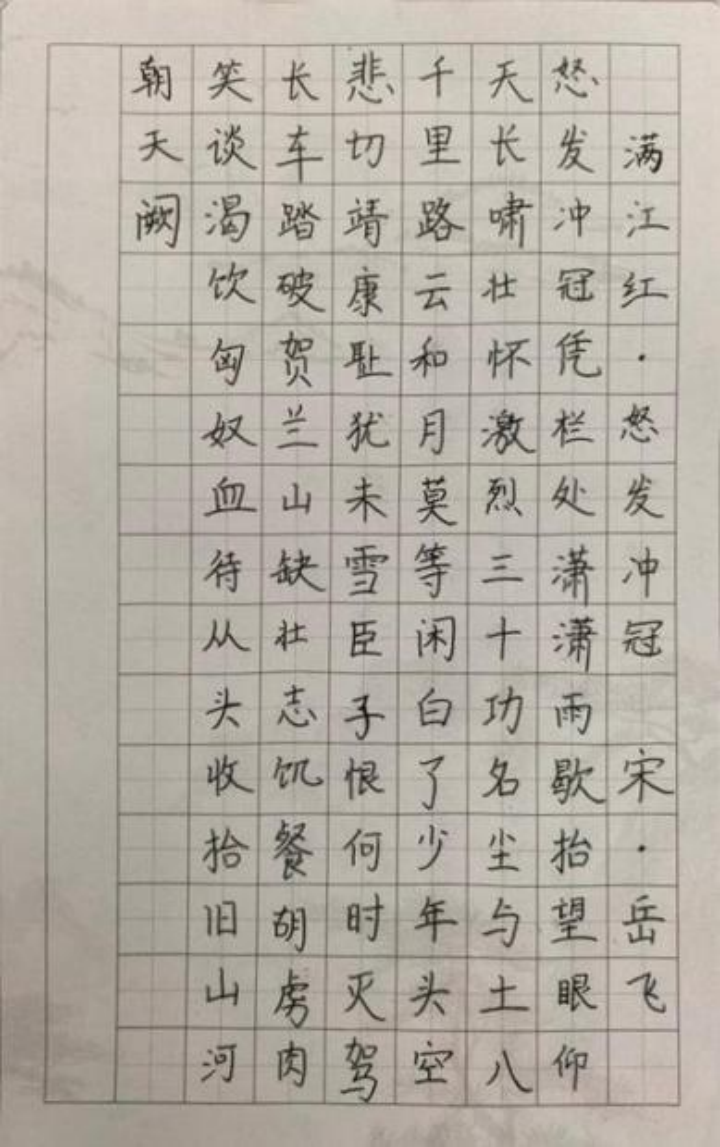 满江红·怒发冲冠 宋·岳飞
怒发冲冠凭栏处潇潇雨歇抬望眼仰
天长啸壮怀激烈三十功名尘与土八
千里路云和月莫等闲白了少年头空
悲切靖康耻犹未雪臣子恨何时灭驾
长车踏破贺兰山缺壮志饥餐胡虏肉
笑谈渴饮匈奴血待从头收拾旧山河
朝天阙